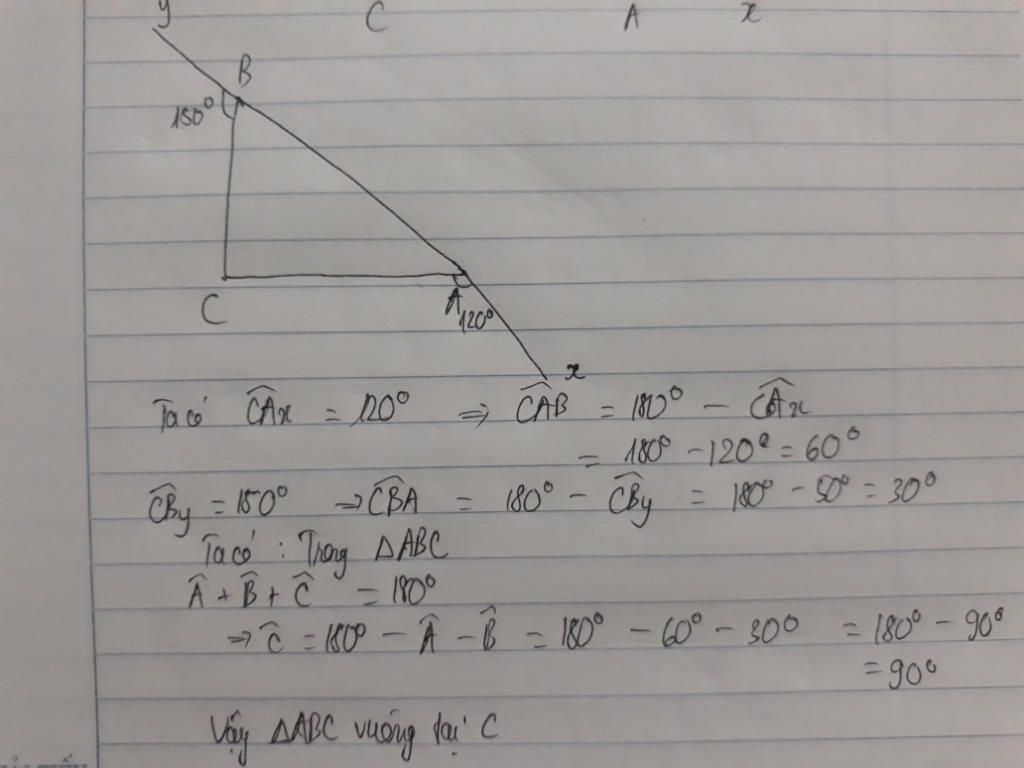 y C A x
B
150°
C A 120°
x
Ta có CAx = 120° ⇒ CAB = 180° - CAx
= 180° - 120° = 60°
CBy = 150° ⇒ CBA = 180° - CBy = 180° - 50° = 30°
Ta có : Trong ΔABC
Â + B̂ + Ĉ = 180°
⇒ Ĉ = 180° - Â - B̂ = 180° - 60° - 30° = 180° - 90°
= 90°
Vậy ΔABC vuông tại C